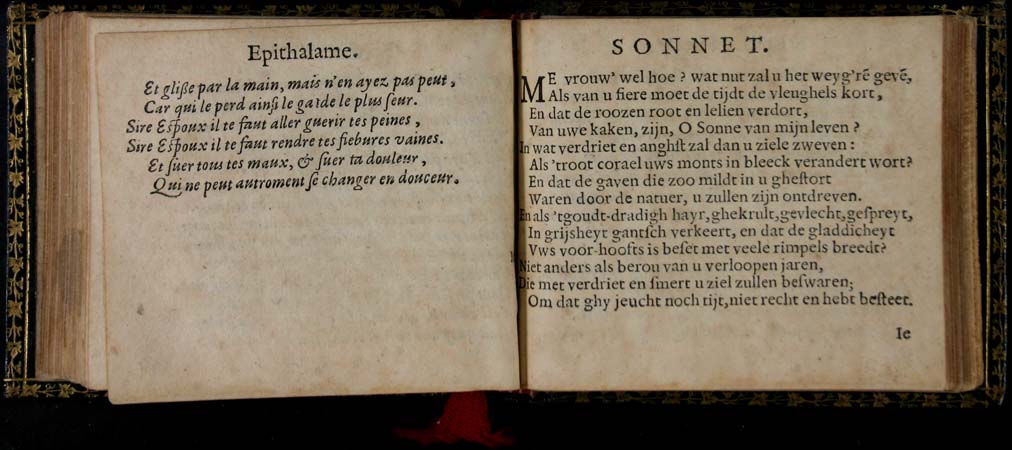 Epithalame.
Et gliſſe par la main, mais n'en ayez pas peut,
Car qui le perd ainſi le gaıde le plus ſeur.
Sire Eſpoux il te faut aller guerir tes peines,
Sire Eſpoux il te faut rendre tes fiebures vaines.
Et ſuer tous tes maux, & ſuer ta douleur,
Qui ne peut autroment ſe changer en douceur.
SONNET.
ME vrouw' wel hoe? wat nut zal u het weyg'rē gevē,
Als van u fiere moet de tijdt de vleughels kort,
En dat de roozen root en lelien verdort,
Van uwe kaken, zijn, O Sonne van mijn leven?
In wat verdriet en anghſt zal dan u ziele zweven:
Als 'troot corael uws monts in bleeck verandert wort?
En dat de gaven die zoo mildt in u gheſtort
Waren door de natuer, u zullen zijn ontdreven.
En als 'tgoudt-dradigh hayr, ghekrult, gevlecht, geſpreyt,
In grijsheyt gantſch verkeert, en dat de gladdicheyt
Vws voor-hoofts is beſet met veele rimpels breedt?
Niet anders als berou van u verloopen jaren,
Die met verdriet en ſmert u ziel zullen beſwaren;
Om dat ghy jeucht noch tijt, niet recht en hebt beſteet.
Ie